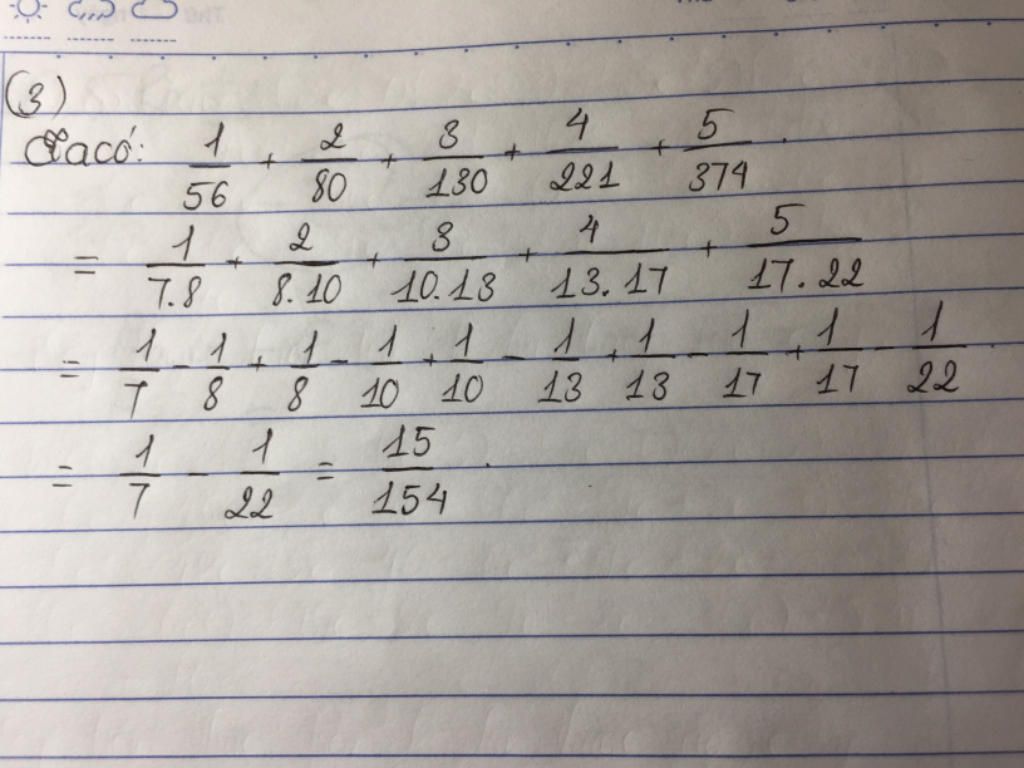 (3)
Ta có: 1/56 + 2/80 + 3/130 + 4/221 + 5/374.
= 1/7.8 + 2/8.10 + 3/10.13 + 4/13.17 + 5/17.22
= 1/7 - 1/8 + 1/8 - 1/10 + 1/10 - 1/13 + 1/13 - 1/17 + 1/17 - 1/22.
= 1/7 - 1/22 = 15/154.